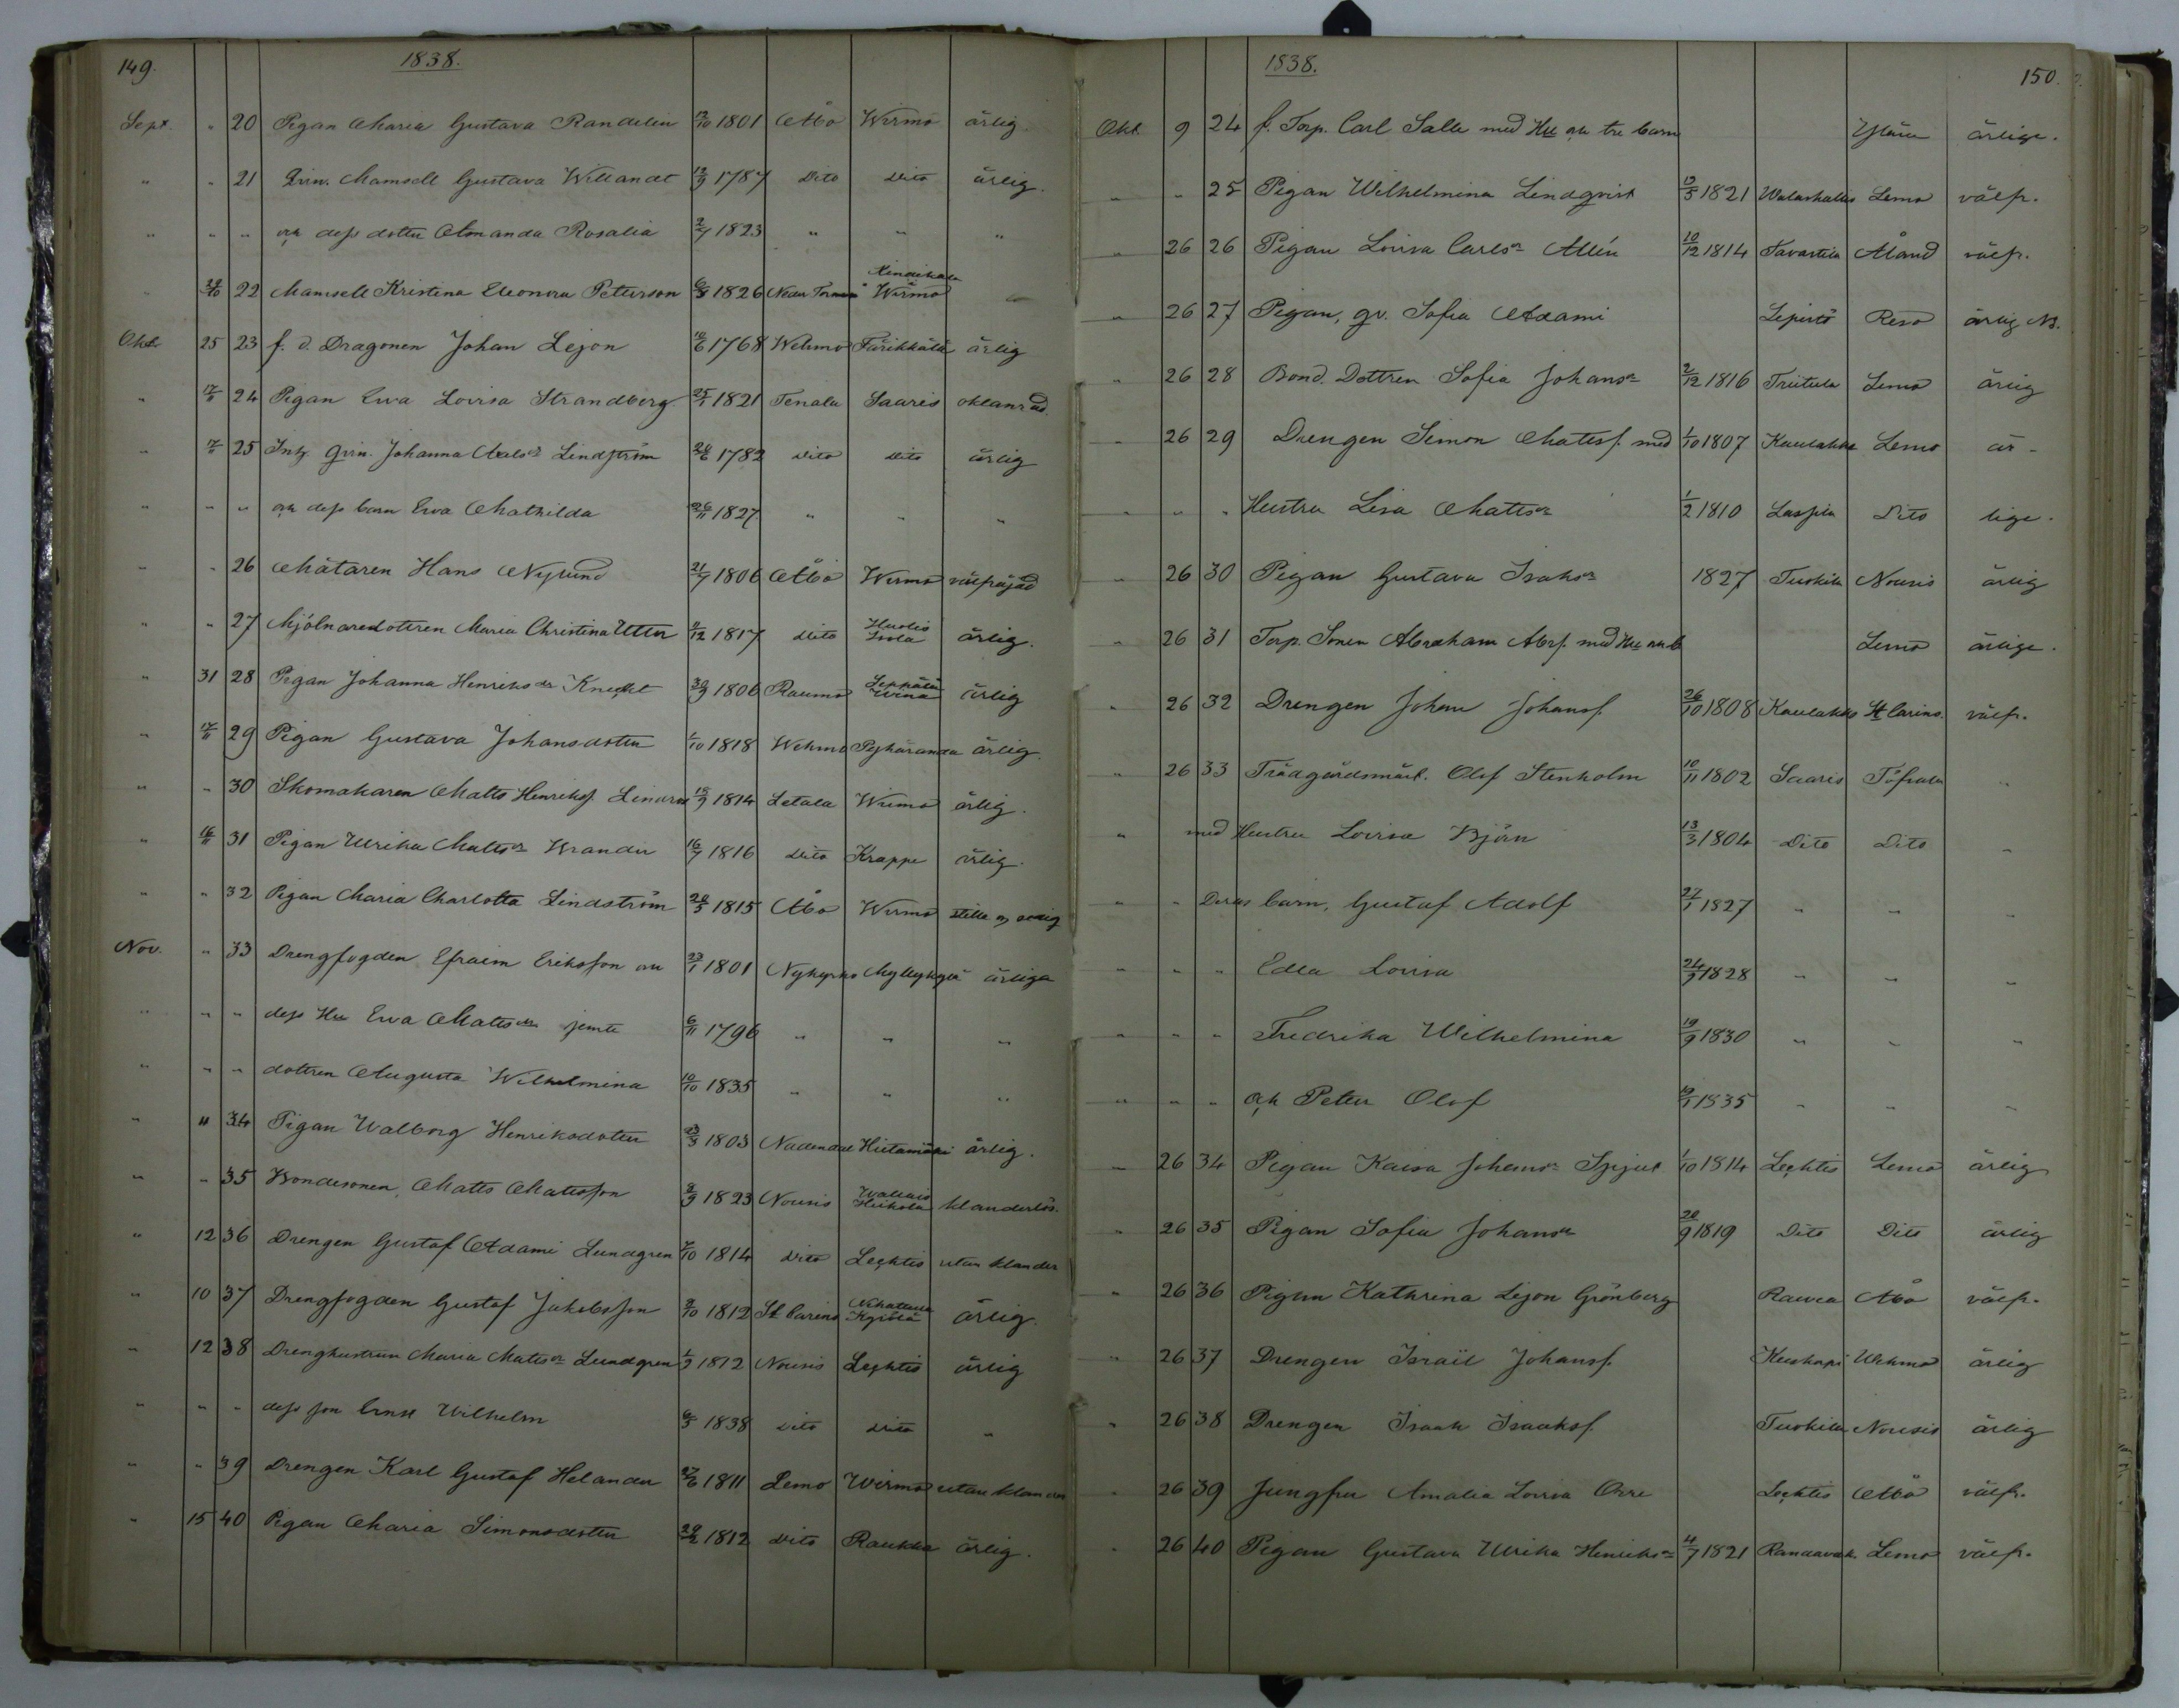 149.
1838.
Sept. " 20 Pigan Maria Gustava Randelin 1801 Åbo Wirmo ärlig.
" " 21 Qvin. Mamsell Gustava Willandt 12/9 1787 dito dito ärlig.
" " " och dess dotter Amanda Rosalia 2/7 1823 " " "
Lindikala
22 Mamsell Kristina Eleonora Peterson 1826 Neder Wirmo "
Oktr. 25 23 f. d. Dragonen Johan Lejon 10/6 1768 Wehmo Färikkälä ärlig
" 17/11 24 Pigan Ewa Lovisa Strandberg 25/1 1821 Tenala Saaris
" 25 Inh. qvin. Johanna Lindström 1782 dito dito ärlig
" " " och dess barn Ewa Mathilda 26/11 1827 " " "
" " 26 Målaren Hans Nylund 21/7 1806 Åbo Wirmo välfräjdad
Huolis
" " 27 Mjölnaredottren Maria Christina Utter 11/12 1817 dito ärlig.
Leppälä
" 31 28 Pigan Johanna Henriksdr Knecht 30/9 1806 Raumo ärlig
" 17/11 29 Pigan Gustava Johansdotter 1/10 1818 Wehmo Pyhäranda ärlig.
" " 30 Skomakaren Matts Henriksf. Lindros 18/9 1814 Letala Wirmo ärlig.
" 16/11 31 Pigan Ulrika Mattsdr Wrander 16/7 1816 dito Krappe ärlig.
" " 32 Pigan Maria Charlotta Lindström 1815 Åbo Wirmo stilla o sedig
Nov. " 33 Drengfogden Efraim Eriksson och 23/1 1801 Nykyrko Myllykylä ärliga
" " " dess Hu Ewa Mattsdr jemte 6/11 1796 " " "
" " " dottren Augusta Wilhelmina 10/10 1835 " " "
" " 34 Pigan Walborg Henriksdotter 1803 Nadendal Hietamäki ärlig.
" " 35 Bondesonen, Matts Matsson 1823 Nousis Heikola klanderlös.
" 12 36 Drengen Gustaf Adami Lundgren 1814 dito Lechtis utan klander
" 10 37 Drengfogden Gustaf Jakobsson 1812 St Carins Kyrölä ärlig.
" 12 38 Drenghustrun Maria Matsdr Lundgren 1/9 1812 Nousis Lechtis ärlig
" " " dess son Ernst Wilhelm 6/5 1838 dito dito "
" " 39 Drengen Karl Gustaf Helander 1811 Lemo Wirmo utan klander
" 15 40 Pigan Maria Simonsdotter 1812 dito Raukka ärlig.
1838.
150.
Okt. 9 24 f. Torp. Carl Salle med Hu och tre barn Yläne ärlige.
" " 25 Pigan Wilhelmina Lindqvist 1821 Lemo välfr.
" 26 26 Pigan Lovisa Carlsdr Allén 10/12 1814 Tavastila Åland välfr.
" 26 27 Pigan, qv. Sofia Adami Lepistö Reso ärlig NB.
" 26 28 Bond. Dottren Sofia Johansdr 2/12 1816 Triitula Lemo ärlig
" 26 29 Drengen Simon Matsf. med 1/10 1807 Kaulakko Lemo är-
" " " Hustru Lisa Mattsdr 1/2 1810 Laspila Dito lige.
" 26 30 Pigan Gustava Isaksdr 1827 Tuokila Nousis ärlig
" 26 31 Torp. Sonen Abraham Abrf. med Hu och b Lemo ärlige.
" 26 32 Drengen Johan Johansf. 26/10 1808 Kaulakko St Carins. välfr.
" 26 33 Trädgårdsmäst. Olof Stenholm 10/11 1802 Saaris Töfsala "
" med Hustru Lovisa Björn 13/3 1804 Dito Dito "
" " Deras barn, Gustaf Adolf 27/1 1827 " " "
" " " Edla Lovisa 24/9 1828 " " "
" " " Fredrika Wilhelmina 19/9 1830 " " "
" " " och Peter Olof 1835 " " "
" 26 34 Pigan Kaisa Johansdr Spjut 1/10 1814 Lechtis Lemo ärlig
" 26 35 Pigan Sofia Johansdr 20/9 1819 Dito Dito ärlig
" 26 36 Pigan Kathrina Lejon Grönberg Åbo välfr.
" 26 37 Drengen Israil Johansf. Wehmo ärlig
" 26 38 Drengen Isaak Isaaksf. Tuokila Nousis ärlig
" 26 39 Jungfru Amalia Lovisa Orre Lechtis Åbo välfr.
" 26 40 Pigan Gustava Ulrika Henriksdr 4/7 1821 Lemo välfr.